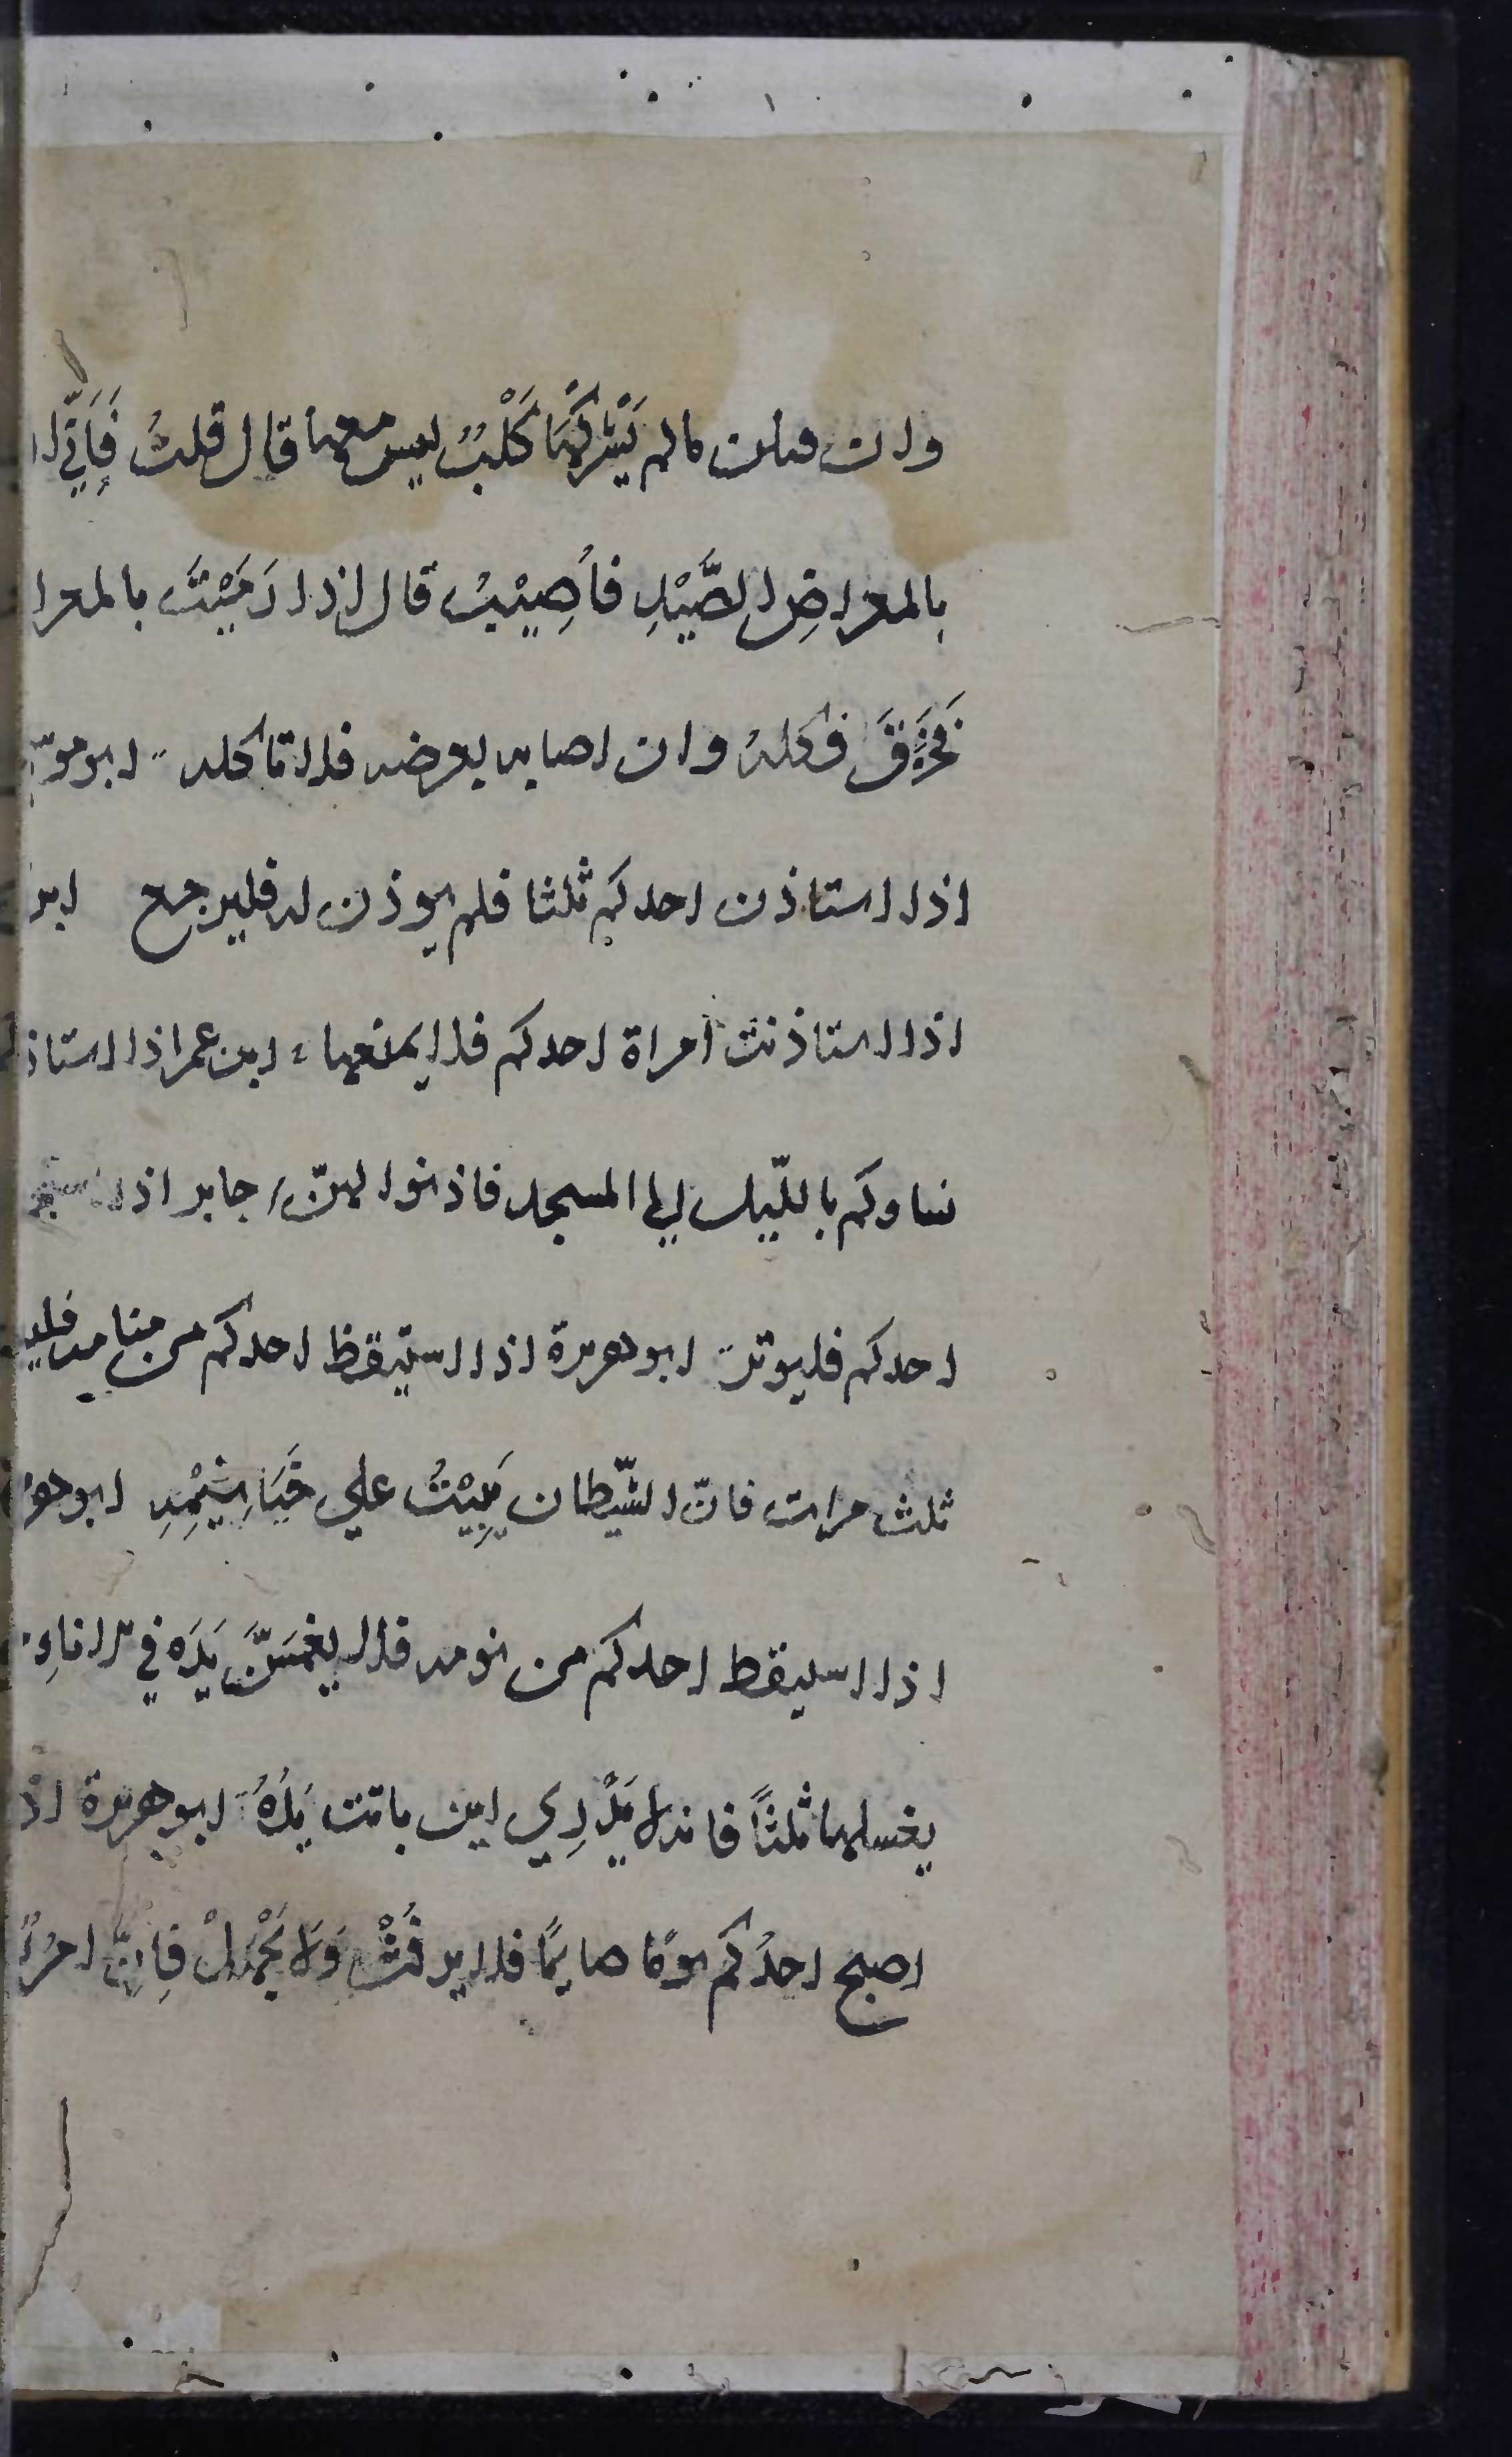 وان قتلن مالم يَشْرَكْهَا كَلْبٌ ليس معها قال قلتُ فَاِنِّي ا
بالمعراضِ الصَّيْدِ فاُصِيْبُ قال اذا رَمَيْتَ بالمعرا
فَخَزَقَ فكلهُ وان اصابه بعرضه فلا تاكله ابو مو
اذا استاذن احدكم ثلثا فلم يوذن له فليرجع ابو
اذا استاذنت امراة احدكم فلا يمنعها ابن عمر اذا استاذ
نساوكم بالليل الي المسجد فاذنوا لهنّ جابر اذا استجمر
احدكم فليوتر ابو هريرة اذا استيقظ احدكم من منامه فليـ
ثلث مرات فانّ الشّيطان يَبِيْتُ علي خَيَاشِيْمِهِ ابو هر
اذا استيقظ احدكم من نومه فلا يغمسَنَّ يَدَه في الاناءِ
يغسلها ثلثًا فانه لا يَدْرِي اين باتت يَدُهُ ابو هريرة اذ
اصبح احدُكم يومًا صايمًا فلا يرفُثْ وَلَا يَجْهَلْ فاِنِ امرُؤ